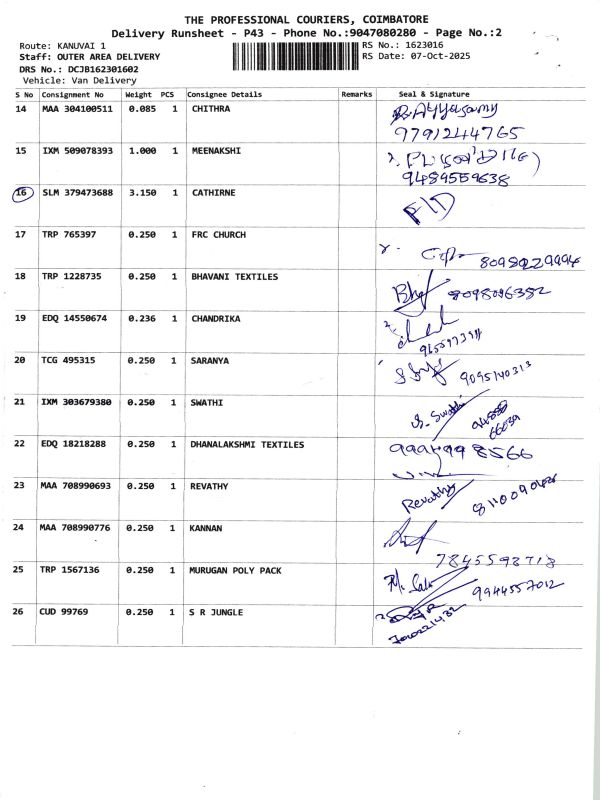 THE PROFESSIONAL COURIERS, COIMBATORE
Delivery Runsheet - P43 - Phone No.:9047080280 - Page No.:2
Route: KANUVAI 1
RS No.: 1623016
Staff: OUTER AREA DELIVERY
RS Date: 07-Oct-2025
DRS No.: DCJB162301602
Vehicle: Van Delivery
S No Consignment No Weight PCS Consignee Details Remarks Seal & Signature
14 MAA 304100511 0.085 1 CHITHRA R. Ayyasamy
9791244765
15 IXM 509078393 1.000 1 MEENAKSHI
9489559638
16 SLM 379473688 3.150 1 CATHIRNE
17 TRP 765397 0.250 1 FRC CHURCH
18 TRP 1228735 0.250 1 BHAVANI TEXTILES
8098096382
19 EDQ 14550674 0.236 1 CHANDRIKA
20 TCG 495315 0.250 1 SARANYA
9095140313
21 IXM 303679380 0.250 1 SWATHI S. Swathi
22 EDQ 18218288 0.250 1 DHANALAKSHMI TEXTILES
23 MAA 708990693 0.250 1 REVATHY Revathy
24 MAA 708990776 0.250 1 KANNAN
25 TRP 1567136 0.250 1 MURUGAN POLY PACK
9944557012
26 CUD 99769 0.250 1 S R JUNGLE